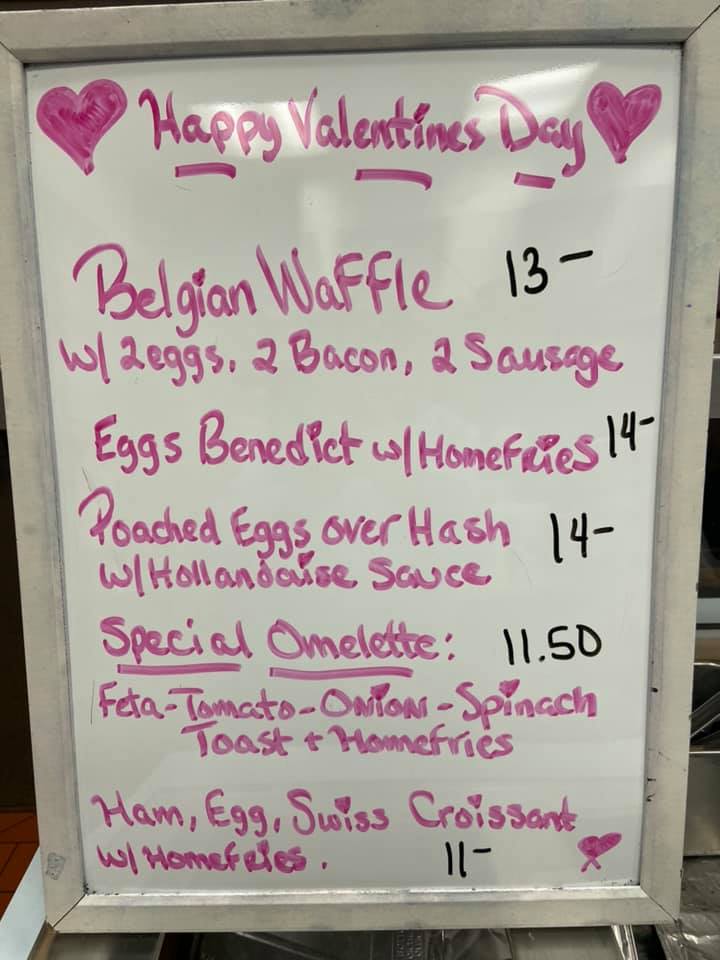 Happy Valentines Day
Belgian Waffle 13-
w/ 2eggs, 2 Bacon, 2 Sausage
Eggs Benedict w/ Homefries 14-
Poached Eggs over Hash 14-
w/ Hollandaise Sauce
Special Omelette: 11.50
Feta-Tomato-Onion-Spinach
Toast + Homefries
Ham, Egg, Swiss Croissant
w/ Homefries. 11-